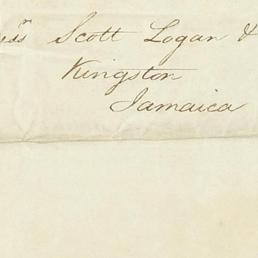 Scott Logan &
Kingston
Jamaica